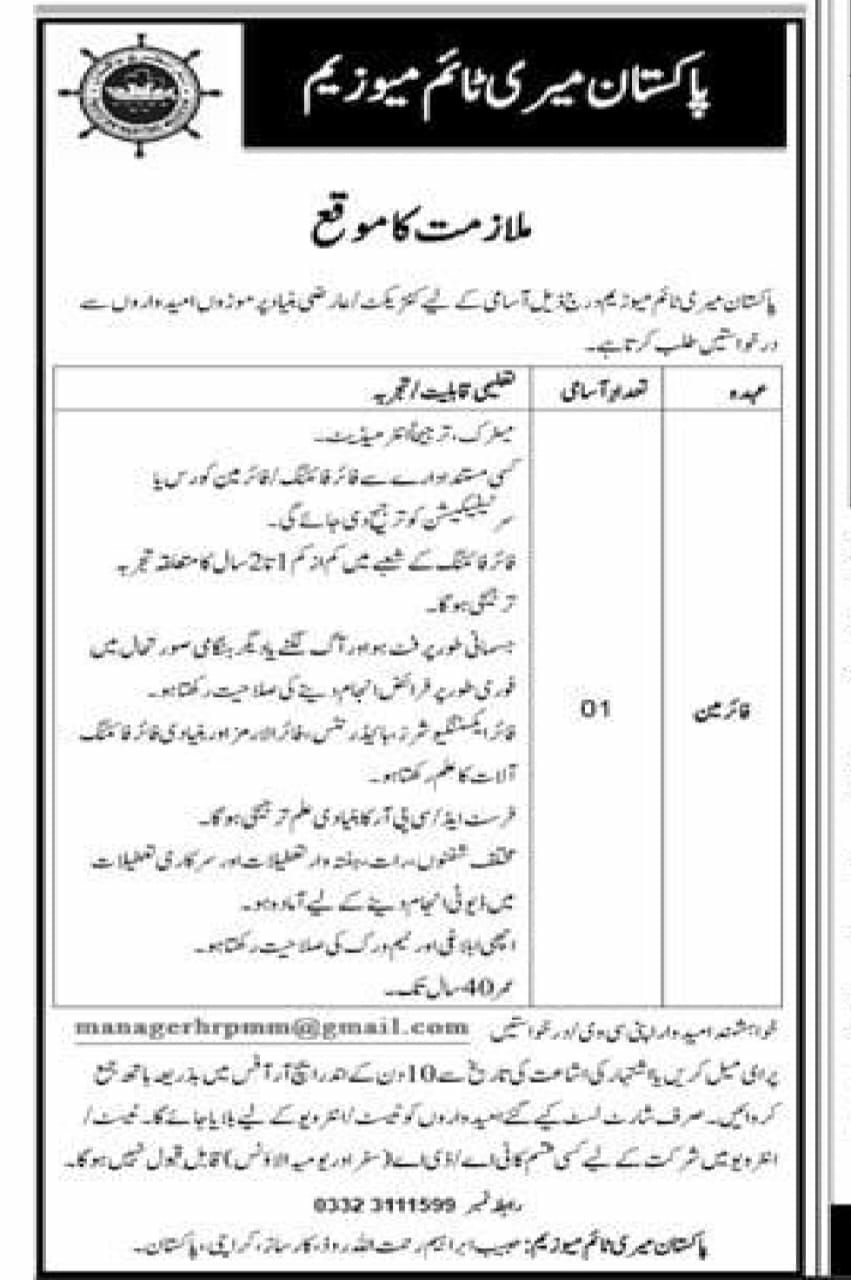 پاکستان میری ٹائم میوزیم
ملازمت کا موقع
پاکستان میری ٹائم میوزیم درج ذیل آسامی کے لیے کنٹریکٹ/عارضی بنیاد پر موزوں امیدواروں سے
درخواستیں طلب کرتا ہے۔
عہدہ
تعداد آسامی
تعلیمی قابلیت/تجربہ
فائر مین
01
میٹرک، ترجیحاً انٹرمیڈیٹ۔
کسی مستند ادارے سے فائر فائٹنگ/فائر مین کورس یا
سرٹیفیکیشن کو ترجیح دی جائے گی۔
فائر فائٹنگ کے شعبے میں کم از کم 1 تا 2 سال کا متعلقہ تجربہ
ترجیحی ہوگا۔
جسمانی طور پر فٹ ہو اور آگ لگنے یا دیگر ہنگامی صورتحال میں
فوری طور پر فرائض انجام دینے کی صلاحیت رکھتا ہو۔
فائر ایکسٹنگیوشرز، ہائیڈرنٹس، فائر الارمز اور بنیادی فائر فائٹنگ
آلات کا علم رکھتا ہو۔
فرسٹ ایڈ/سی پی آر کا بنیادی علم ترجیحی ہوگا۔
مختلف شفٹوں، رات، ہفتہ وار تعطیلات اور سرکاری تعطیلات
میں ڈیوٹی انجام دینے کے لیے آمادہ ہو۔
اچھی ابلاغی اور ٹیم ورک کی صلاحیت رکھتا ہو۔
عمر 40 سال تک۔
خواہشمند امیدوار اپنی سی وی/درخواستیں managerhrpmm@gmail.com
پر ای میل کریں یا اشتہار کی اشاعت کی تاریخ سے 10 دن کے اندر ایچ آر آفس میں بذریعہ ہاتھ جمع
کروائیں۔ صرف شارٹ لسٹ کیے گئے امیدواروں کو ٹیسٹ/انٹرویو کے لیے بلایا جائے گا۔ ٹیسٹ/
انٹرویو میں شرکت کے لیے کسی قسم کا ٹی اے/ڈی اے (سفر اور یومیہ الاؤنس) قابل قبول نہیں ہوگا۔
رابطہ نمبر 0332 3111599
پاکستان میری ٹائم میوزیم: حبیب ابراہیم رحمت اللہ روڈ، کارساز، کراچی، پاکستان۔